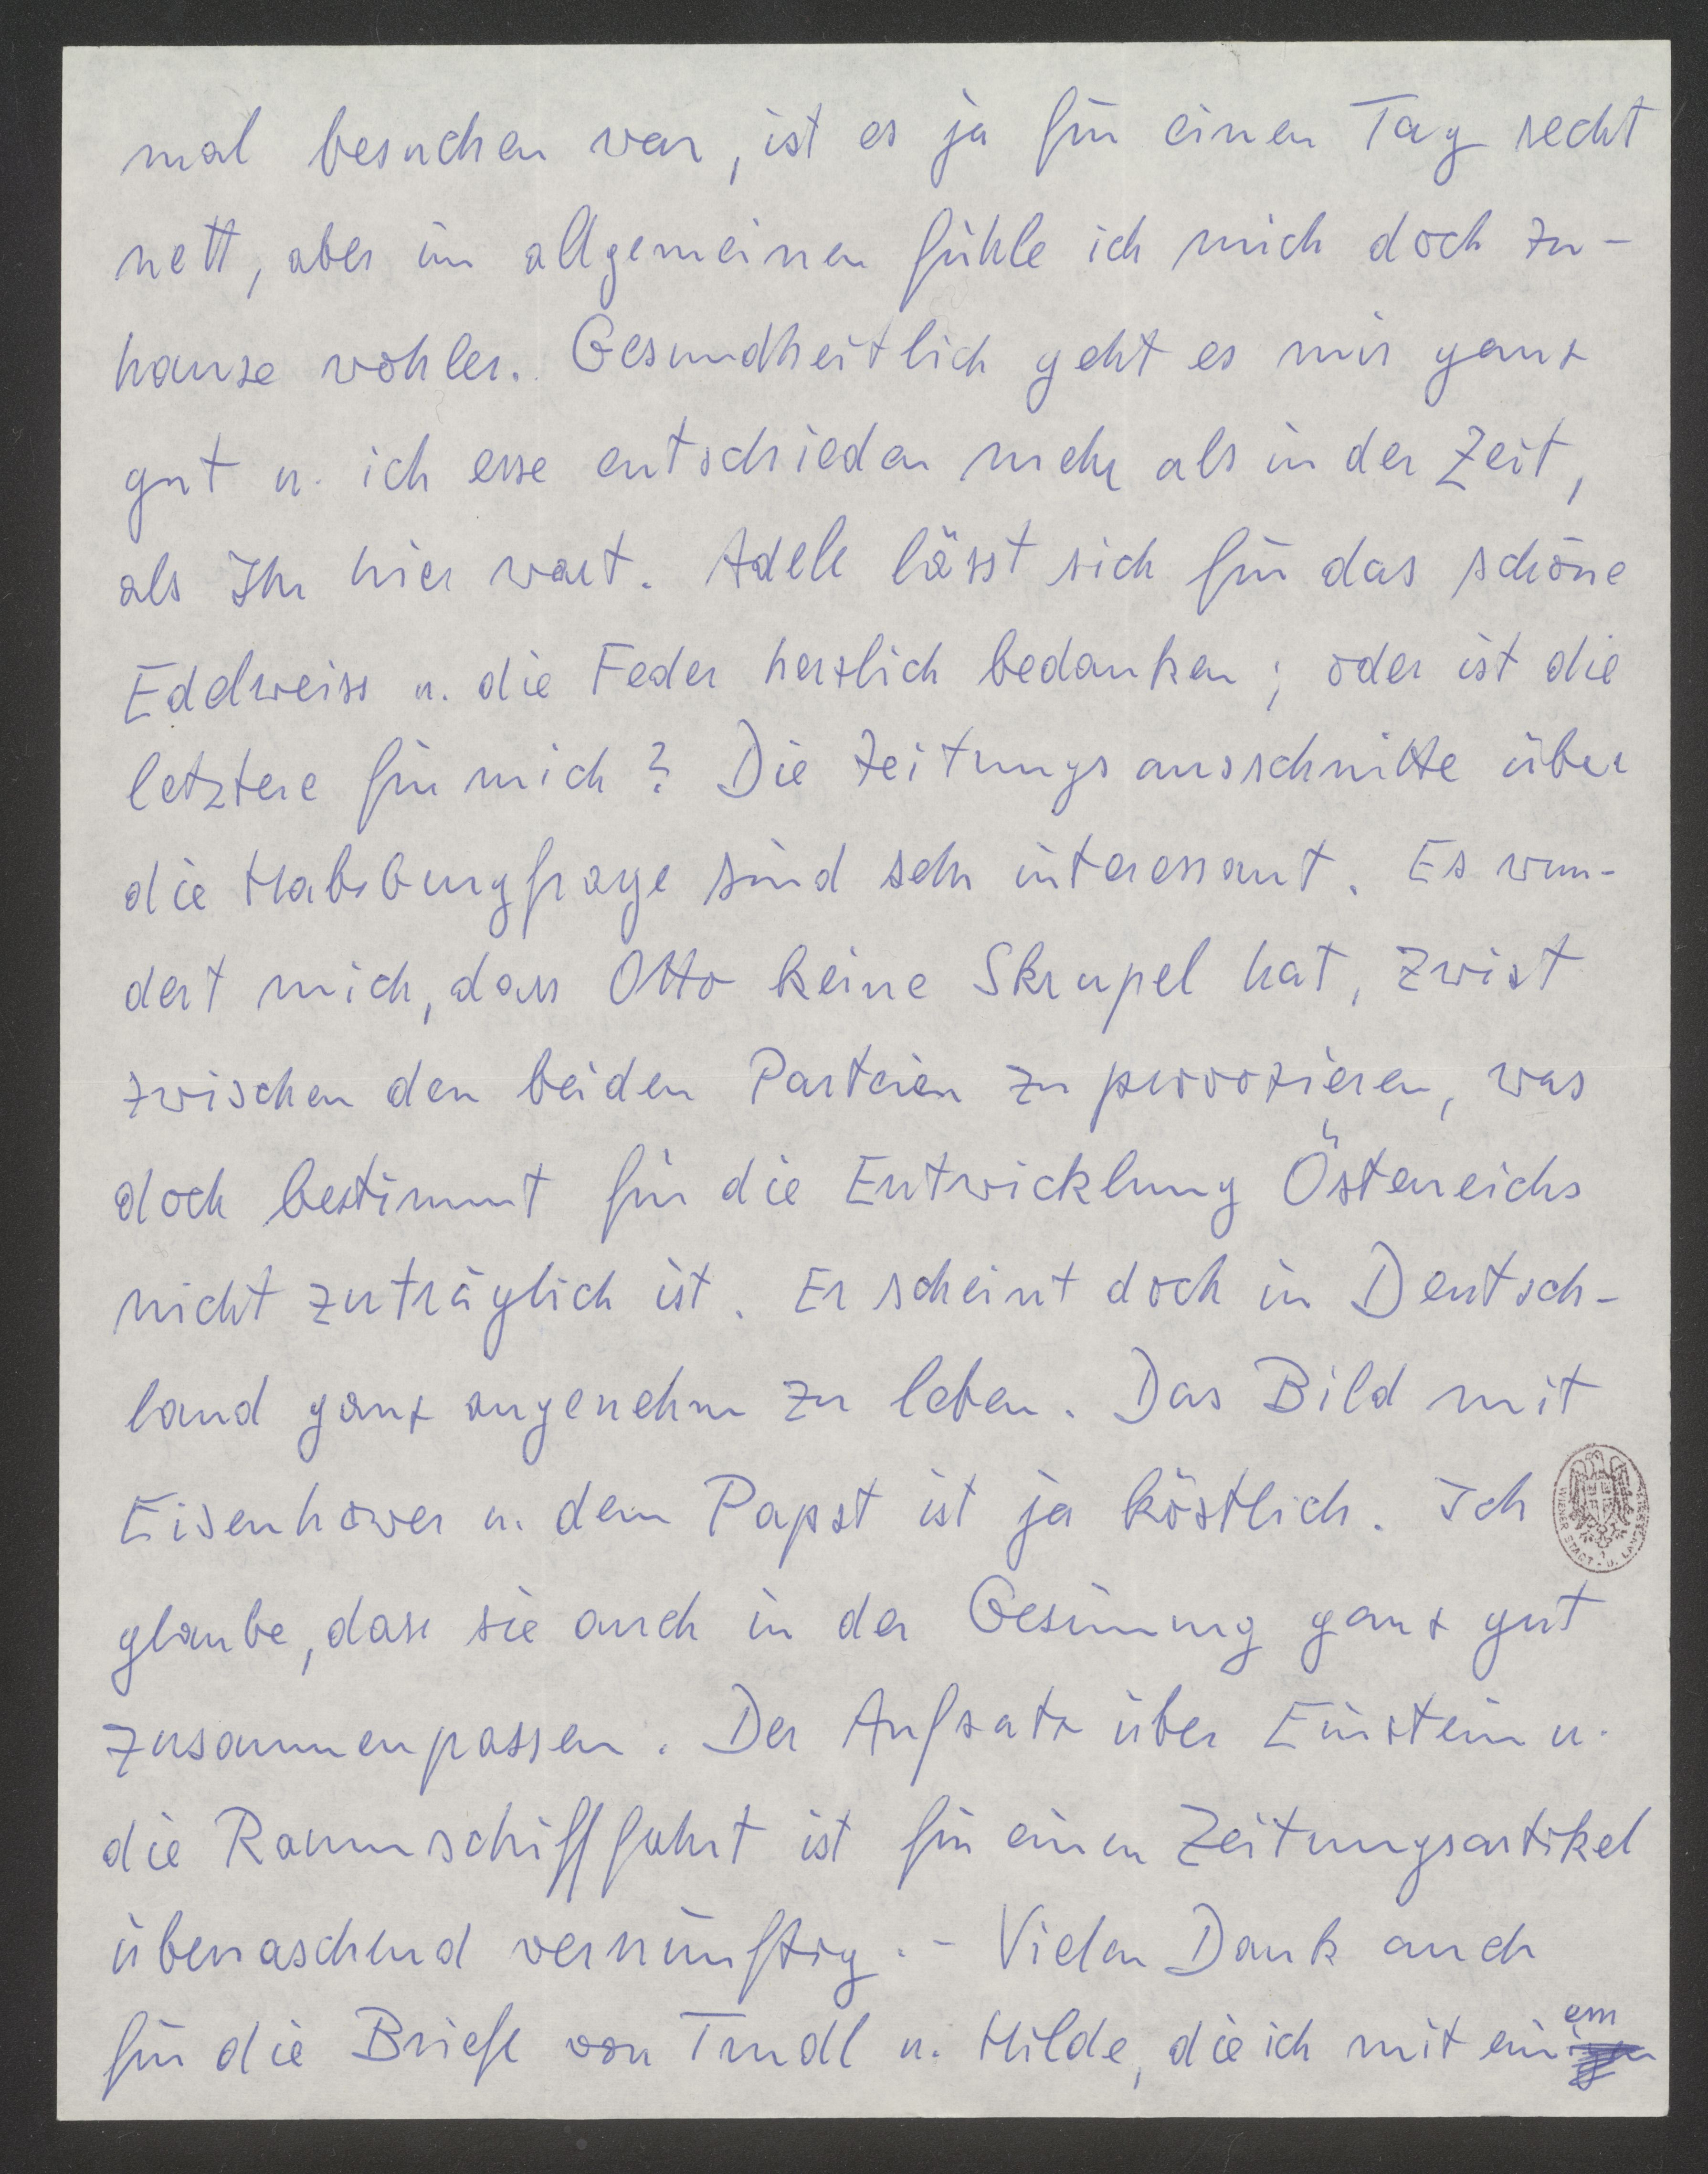 mal besuchen war, ist es ja für einen Tag recht
nett, aber im allgemeinen fühle ich mich doch zu-
hause wohler. Gesundheitlich geht es mir ganz
gut u. ich esse entschieden mehr als in der Zeit,
als Ihr hier wart. Adele lässt sich für das schöne
Edelweiss u. die Feder herzlich bedanken; oder ist die
letztere für mich? Die Zeitungsausschnitte über
die Habsburgfrage sind sehr interessant. Es wun-
dert mich, dass Otto keine Skrupel hat, Zwist
zwischen den beiden Parteien zu provozieren, was
doch bestimmt für die Entwicklung Österreichs
nicht zuträglich ist. Er scheint doch in Deutsch-
land ganz angenehm zu leben. Das Bild mit
Eisenhower u. dem Papst ist ja köstlich. Ich
WIENER STADT- U.
glaube, dass sie auch in der Gesinnung ganz gut
zusammenpassen. Der Aufsatz über Einstein u.
die Raumschifffahrt ist für einen Zeitungsartikel
überraschend vernünftig. - Vielen Dank auch
für die Briefe von Trudl u. Hilde, die ich mit einem